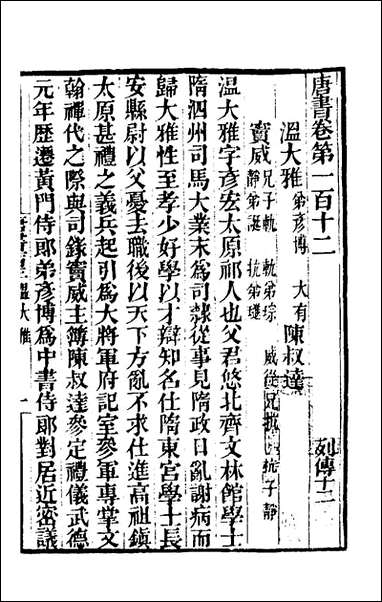 唐書卷第一百十二
列傳十二
溫大雅 弟彥博 大有 陳叔達
竇威 兄子軌 軌弟琮 威從兄抗 抗子靜
靜弟誕 抗弟璡
溫大雅字彥宏太原祁人也父君悠北齊文林館學士
隋泗州司馬大業末為司隷從事見隋政日亂謝病而
歸大雅性至孝少好學以才辯知名仕隋東宮學士長
安縣尉以父憂去職後以天下方亂不求仕進高祖鎮
太原甚禮之義兵起引為大將軍府記室參軍專掌文
翰禪代之際與司錄竇威主簿陳叔達參定禮儀武德
元年歷遷黃門侍郎弟彥博為中書侍郎對居近密議
溫大雅
一